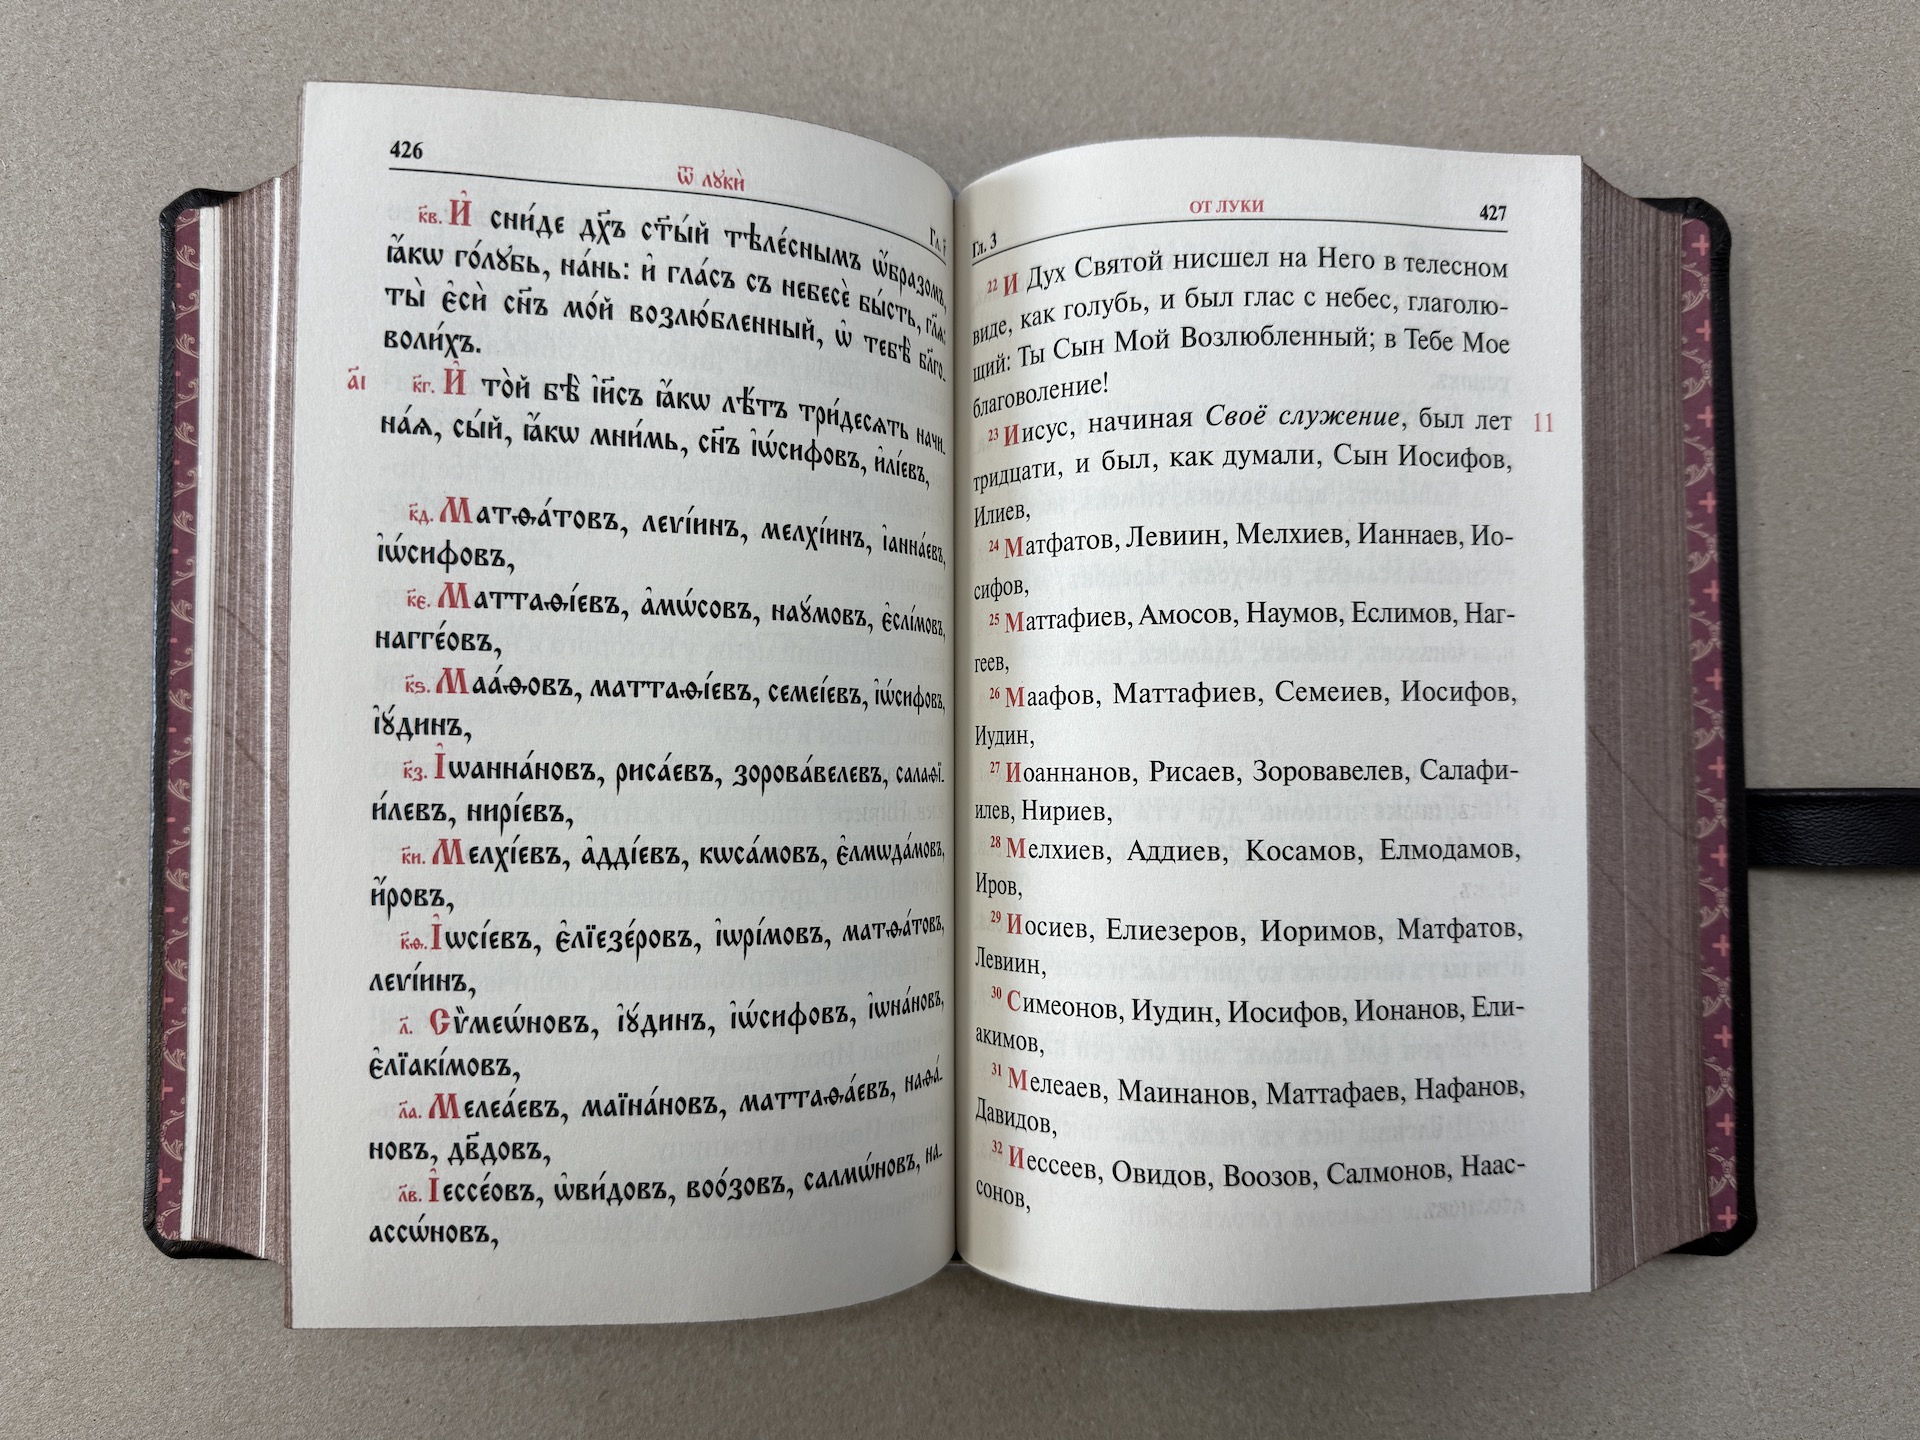 426
ѿ лꙋкѝ
Гл. г҃
к҃в. И҆ сни́де дх҃ъ ст҃ы́й тѣле́снымъ ѡ҆́бразомъ,
ꙗ҆́кѡ го́лꙋбь, на́нь: и҆ гла́съ съ небесѐ бы́сть, гл҃ѧ:
ты̀ є҆сѝ сн҃ъ мо́й возлю́бленный, ѡ҆ тебѣ̀ бл҃го-
воли́хъ.
а҃і
к҃г. И҆ то́й бѣ̀ і҆и҃съ ꙗ҆́кѡ лѣ́тъ три́десѧть начи-
на́ѧ, сы́й, ꙗ҆́кѡ мни́мь, сн҃ъ і҆ѡ́сифовъ, и҆лі́евъ,
к҃д. Матѳа́товъ, леѵі́инъ, мелхі́инъ, і҆анна́евъ,
і҆ѡ́сифовъ,
к҃є. Маттаѳі́евъ, а҆мѡ́совъ, наꙋ́мовъ, є҆слі́мовъ,
нагге́овъ,
к҃ѕ. Маа́ѳовъ, маттаѳі́евъ, семеі́евъ, і҆ѡ́сифовъ,
і҆ꙋ́динъ,
к҃з. І҆ѡанна́новъ, риса́евъ, зорова́велевъ, салаѳї-
и́левъ, нирі́евъ,
к҃и. Мелхі́евъ, а҆дді́евъ, кѡса́мовъ, є҆лмѡда́мовъ,
и҆́ровъ,
к҃ѳ. І҆ѡсі́евъ, є҆лїезе́ровъ, і҆ѡрі́мовъ, матѳа́товъ,
леѵі́инъ,
л҃. Сѷмеѡ́новъ, і҆ꙋ́динъ, і҆ѡ́сифовъ, і҆ѡна́новъ,
є҆лїакі́мовъ,
л҃а. Мелеа́евъ, маїна́новъ, маттаѳа́евъ, наѳа́-
новъ, дв҃довъ,
л҃в. І҆ессе́овъ, ѡ҆ви́довъ, воо́зовъ, салмѡ́новъ, на-
ассѡ́новъ,
ОТ ЛУКИ
427
Гл. 3
22 И Дух Святой нисшел на Него в телесном
виде, как голубь, и был глас с небес, глаголю-
щий: Ты Сын Мой Возлюбленный; в Тебе Мое
благоволение!
23 Иисус, начиная Своё служение, был лет
11
тридцати, и был, как думали, Сын Иосифов,
Илиев,
24 Матфатов, Левиин, Мелхиев, Ианнаев, Ио-
сифов,
25 Маттафиев, Амосов, Наумов, Еслимов, Наг-
геев,
26 Маафов, Маттафиев, Семеиев, Иосифов,
Иудин,
27 Иоаннанов, Рисаев, Зоровавелев, Салафи-
илев, Нириев,
28 Мелхиев, Аддиев, Косамов, Елмодамов,
Иров,
29 Иосиев, Елиезеров, Иоримов, Матфатов,
Левиин,
30 Симеонов, Иудин, Иосифов, Ионанов, Ели-
акимов,
31 Мелеаев, Маинанов, Маттафаев, Нафанов,
Давидов,
32 Иессеев, Овидов, Воозов, Салмонов, Наас-
сонов,